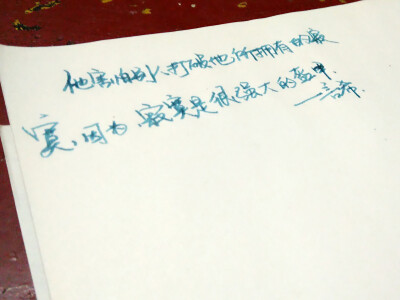 他害怕别人打破他所拥有的寂
寞,因为寂寞是很强大的盔甲
——言希.